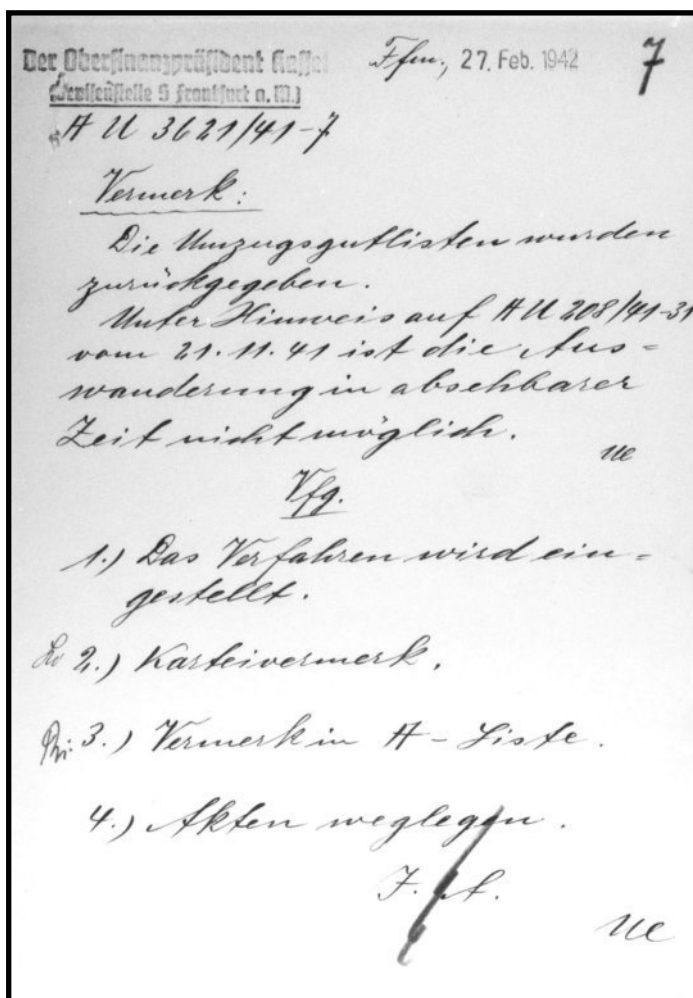 Der Oberfinanzpräsident Kassel
(Devisenstelle S Frankfurt a. M.)
Ffm., 27. Feb. 1942
7
A U 3621/41-7
Vermerk:
Die Umzugsgutlisten wurden
zurückgegeben.
Unter Hinweis auf A U 208/41-31
vom 21.11.41 ist die Aus=
wanderung in absehbarer
Zeit nicht möglich.
Ue
Vfg.
1.) Das Verfahren wird ein=
gestellt.
2.) Karteivermerk.
3.) Vermerk in A-Liste.
4.) Akten weglegen.
I. A.
Ue